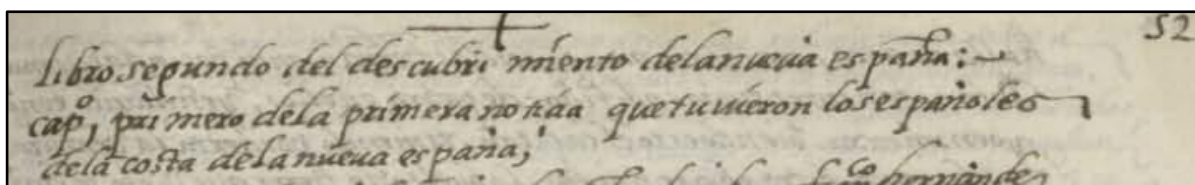 52
libro segundo del descubri miento delanueua españa:
capº, primero dela primera noticia que tuuieron los españoles
dela costa delanueua españa,
franco hernande